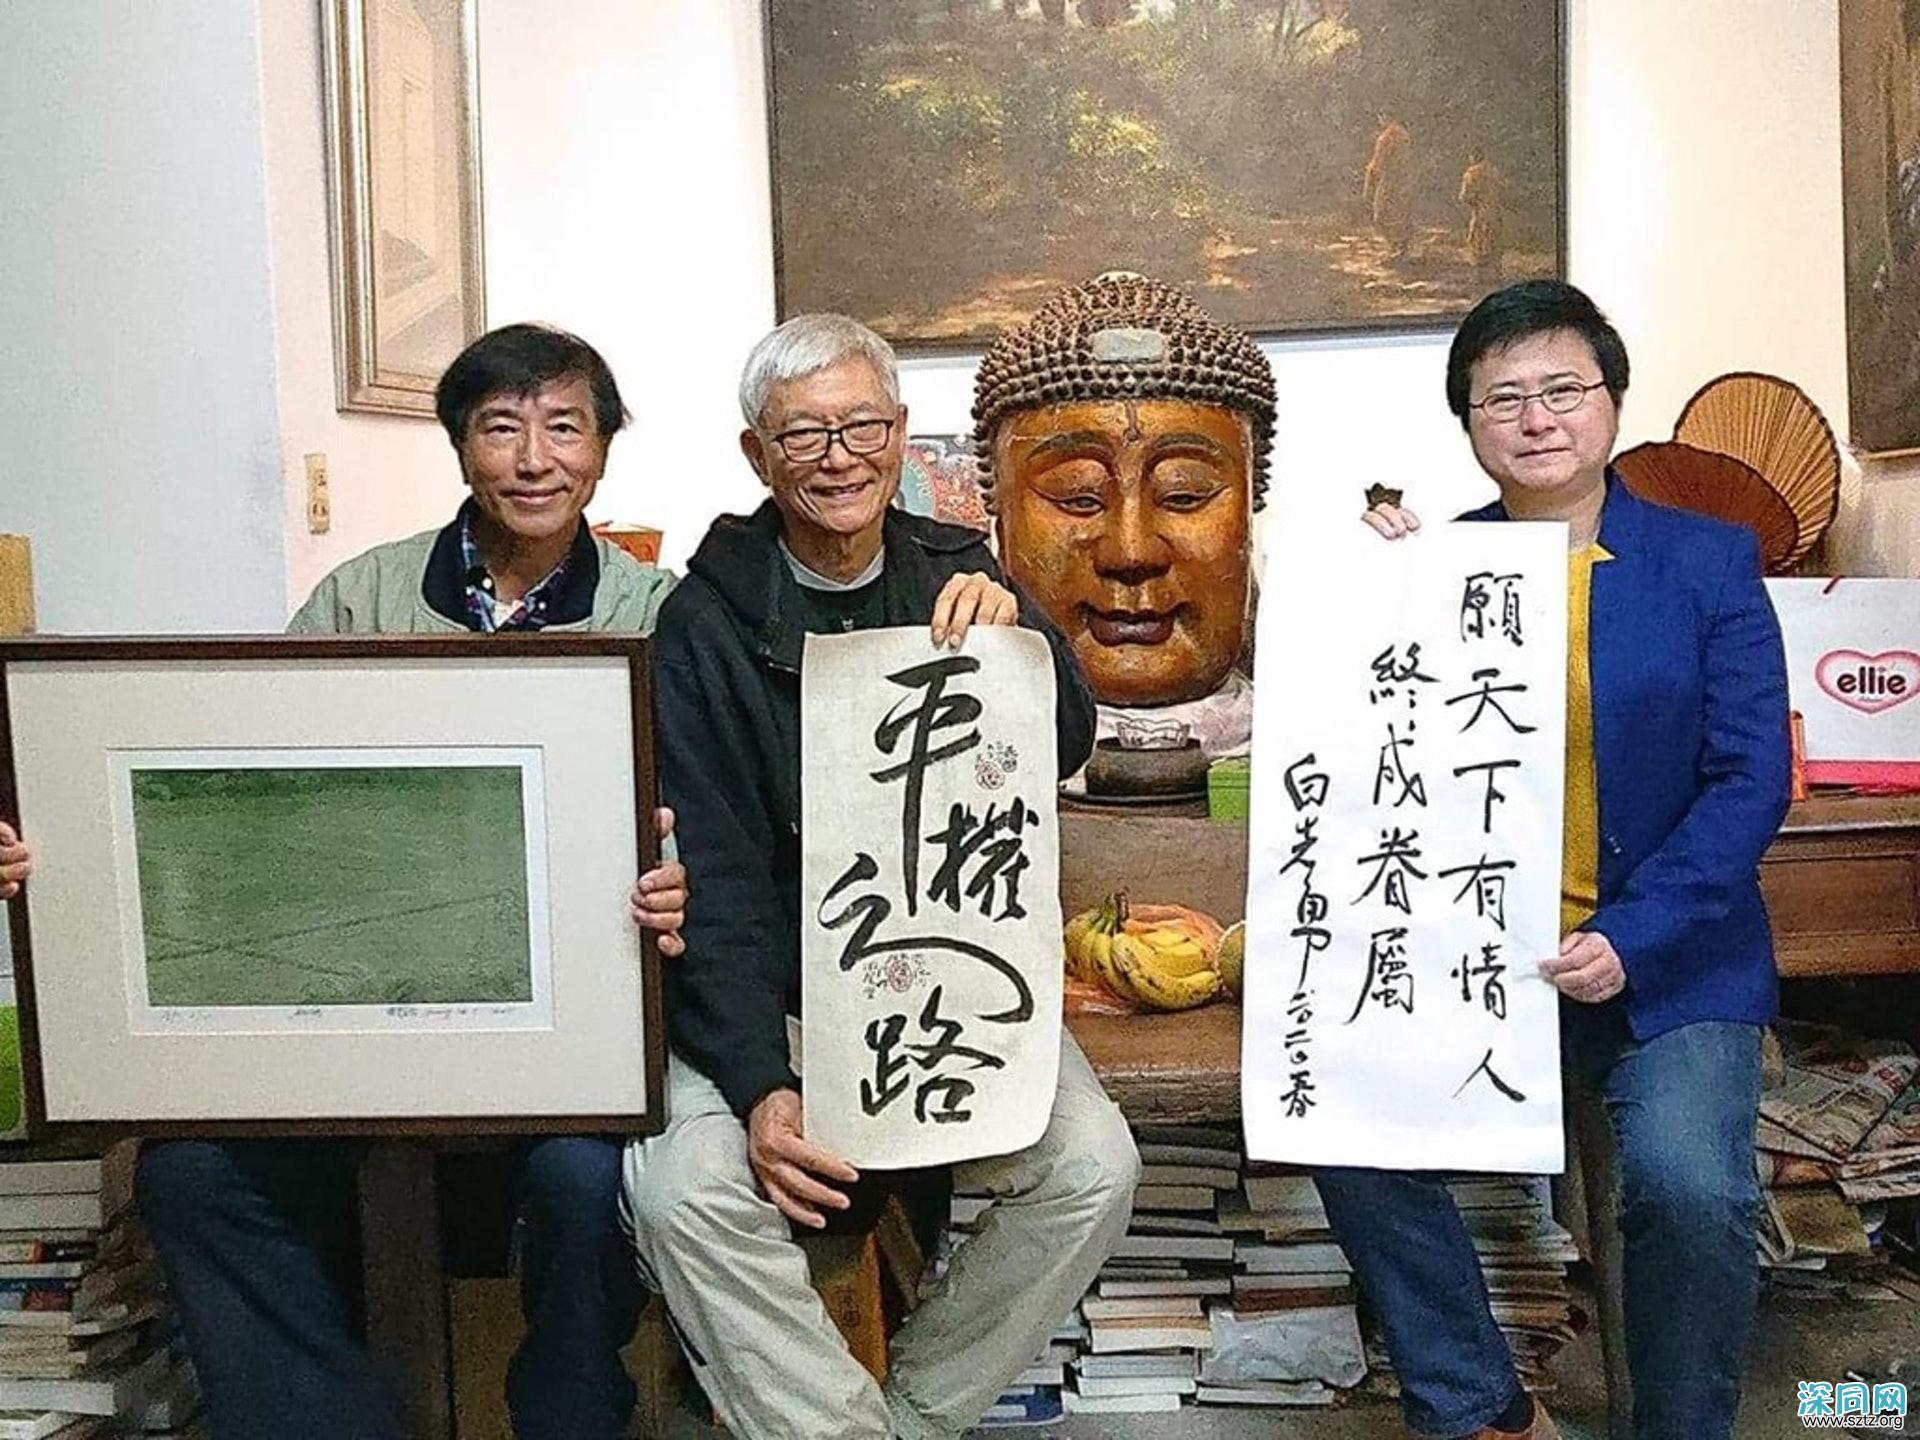 平權之路
願天下有情人
終成眷屬
白先勇 二〇二〇春
ellie
深同网
www.sztz.org